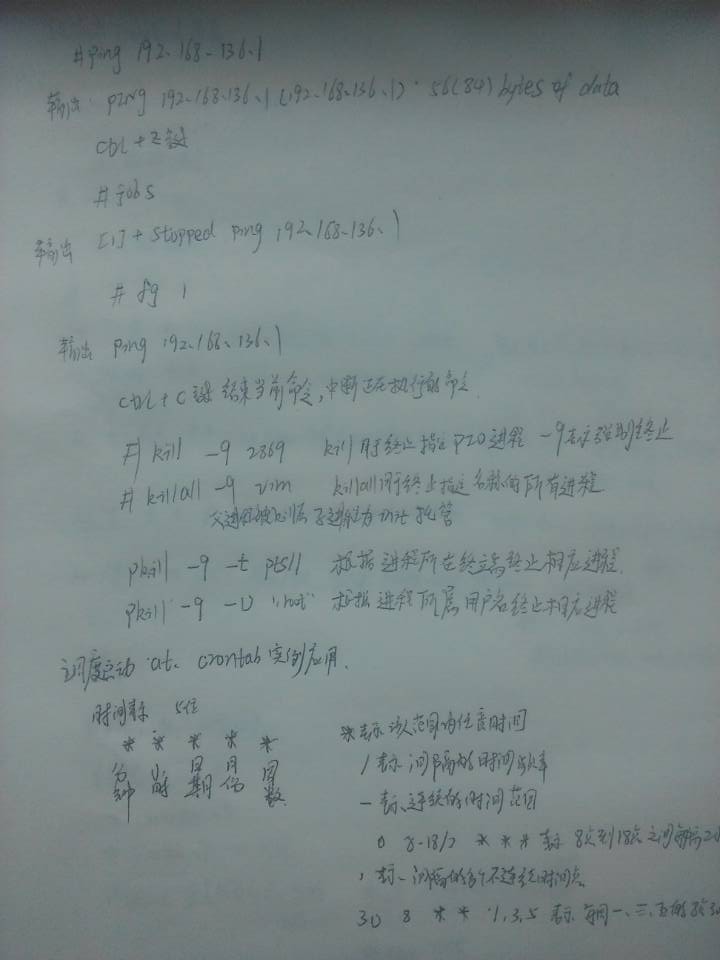 #ping 192.168.136.1
输出 PING 192.168.136.1 (192.168.136.1) 56(84) bytes of data
ctrl + z 键
#jobs
输出 [1]+ stopped ping 192.168.136.1
# fg 1
输出 ping 192.168.136.1
ctrl + c 键 结束当前命令,中断正在执行的命令
# kill -9 2869 kill用于终止指定PID进程 -9表示强制终止
# killall -9 vim killall用于终止指定名称的所有进程
父进程被 子进程 托管
pkill -9 -t pts/1 根据进程所在终端终止相应进程.
pkill -9 -U "root" 根据进程所属用户名终止相应进程
调度启动 at、crontab 实例应用.
时间表示 5位
* * * * *
分钟 小时 日期 月份 周数
* 表示该范围内任意时间
/ 表示 间隔的时间频率
- 表示连续的时间范围
0 8-18/2 * * * 表示 8点到18点之间每隔2
, 表示、间隔的多个不连续时间点
30 8 * * 1,3,5 表示 每周一、三、五的8点